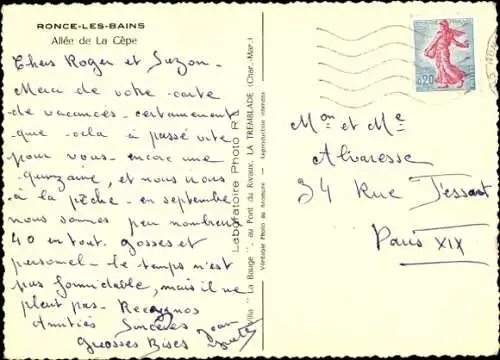 RONCE-LES-BAINS
Allée de La Cèpe
Chers Roger et Suzon -
Merci de votre carte
de vacances - certainement
que cela à passé vite
pour vous - encore une
quinzaine, et nous irons
à la pêche - en septembre
nous sommes peu nombreux
40 en tout. gosses et
personel - le temps n'est
pas formidable, mais il ne
pleut pas -
Amitiés Sincères Jean
Grosses Bises
Laboratoire Photo R
Villa " La Bauge ", au Pont du Rivaux, LA TREMBLADE (Char.-Mar.)
Véritable Photo au Bromure - Reproduction interdite
REPUBLIQUE FRANÇAISE
0,20
Mon et Me
Alvaresse
34 Rue Jessant
Paris XIX